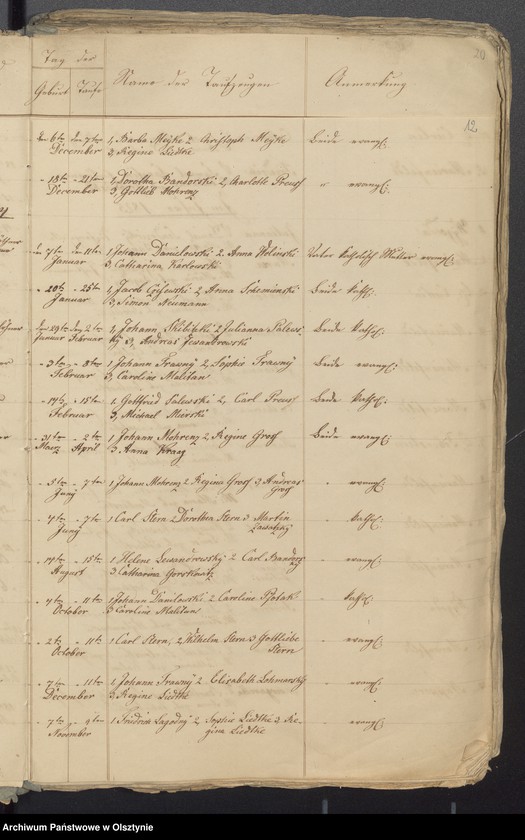 20
Tag der
Geburt Taufe
Name der Taufzeugen
Anmerkung
12.
den 6ten den 7ten
December
1, Barba Meyke 2 Christoph Meyke
3, Regine Liedtke
Beide evangl:
- 18ten - 21ten
December
1, Dorothea Bandorski 2, Charlotte Preuß
3, Gottlieb Mohrenz
" evangl:
den 7ten den 11ten
Januar
1 Johann Danielowski 2. Anna Wolinski
3, Catharina Karlowski
Vater katholisch Mutter evangl:
- 20ten - 25ten
Januar
1, Jacob 2 Anna
3, Simon Neumann
Beide kathl:
den 29ten den 2ten
Januar Februar
1, Johann 2 Julianna Salews-
ki 3, Andreas Lewandrowski
Beide kathol:
- 3ten - 8ten
Februar
1 Johann Frawny 2, Sophie Frawny
3, Caroline Malitan
Beide evangl:
- 14ten - 15ten
Februar
1, Gottfried Salewski 2, Carl Preuß
3, Michael Mirski
Beide kathol:
- 31ten - 2ten
Maerz April
1 Johann Mohrenz 2 Regine Groß
3 Anna Kraag
Beide evangl:
- 5ten - 7ten
Juny
1 Johann Mohrenz 2 Regina Groß 3, Andreas
Groß
- evangl:
- 4ten - 7ten
Juny
1 Carl Stern 2 Dorothea Stern 3 Martin
- kathol:
- 14ten - 15ten
August
1 Helene Lewandrowsky 2 Carl Bandors-
3 Catharina
- evangl:
- 4ten - 11ten
October
1 Johann Danilowski 2 Caroline
3 Caroline Malitan
- kathol:
- 2ten - 11ten
October
1 Carl Stern, 2 Wilhelm Stern 3 Gottliebe
Stern
- evangl:
- 7ten - 11ten
December
1, Johann Frawny 2 Elisabeth
3, Regine Liedtke
- evangl:
- 7ten - 9ten
November
1 Friedrich Lagodny 2, Sophie Liedtke 3 Re-
gina Liedtke
- evangl:
Archiwum Państwowe w Olsztynie